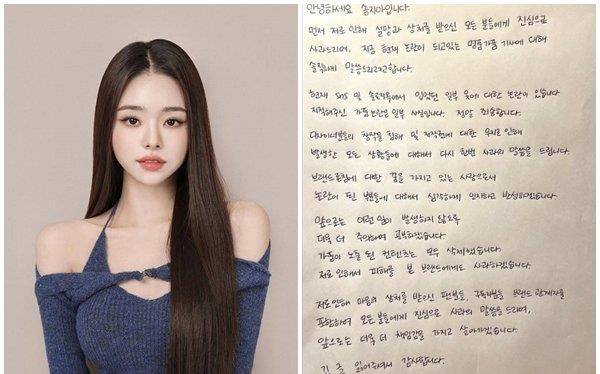 안녕하세요 송지아입니다.
먼저 저로 인해 실망과 상처를 받으신 모든 분들에게 진심으로
사과드리며, 지금 현재 논란이 되고있는 명품가품 기사에 대해
솔직하게 말씀드리려고합니다.
현재 SNS 및 솔로지옥에서 입었던 일부 옷에 대한 논란이 있습니다.
지적해주신 가품논란은 일부 사실입니다. 정말 죄송합니다.
디자이너분들의 창작물 침해 및 저작권에 대한 무지로 인해
발생한 모든 상황들에 대해서 다시 한번 사과의 말씀을 드립니다.
브랜드론칭에 대한 꿈을 가지고 있는 사람으로서
논란이 된 부분들에 대해서 심각하게 인지하고 반성하겠습니다.
앞으로는 이런 일이 발생하지 않도록
더욱 더 주의하며 공부하겠습니다.
가품이 노출 된 컨텐츠는 모두 삭제했습니다.
저로 인해서 피해를 본 브랜드에게도 사과하겠습니다.
저로인해 마음의 상처를 받으신 팬분들, 구독자분들 브랜드 관계자를
포함하여 모든 분들에게 진심으로 사과의 말씀을 드리며,
앞으로는 더욱 더 책임감을 가지고 살아가겠습니다.
긴 글 읽어주셔서 감사합니다.